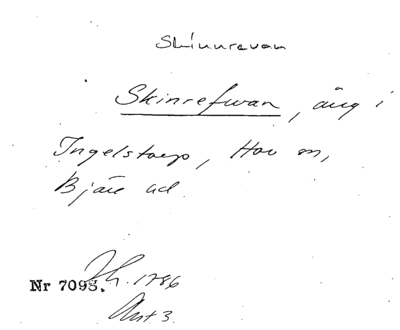 Skinnrevan
Skinrefwan, äng i
Ingelstorp, Hov sn,
Bjäre hd
Nr 7093. 1786
Akt 3.